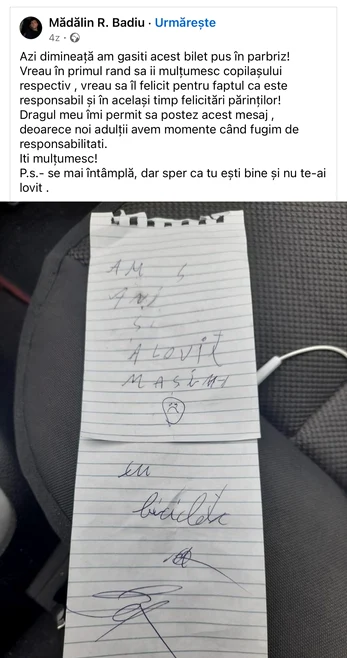 Mădălin R. Badiu · Urmărește
4z ·
Azi dimineață am gasiti acest bilet pus în parbriz!
Vreau în primul rand sa ii mulțumesc copilașului
respectiv , vreau sa îl felicit pentru faptul ca este
responsabil și în același timp felicitări părinților!
Dragul meu îmi permit sa postez acest mesaj ,
deoarece noi adulții avem momente când fugim de
responsabilitati.
Iti mulțumesc!
P.s.- se mai întâmplă, dar sper ca tu ești bine și nu te-ai
lovit .
AM S
ALOVIT
MASINA
cu